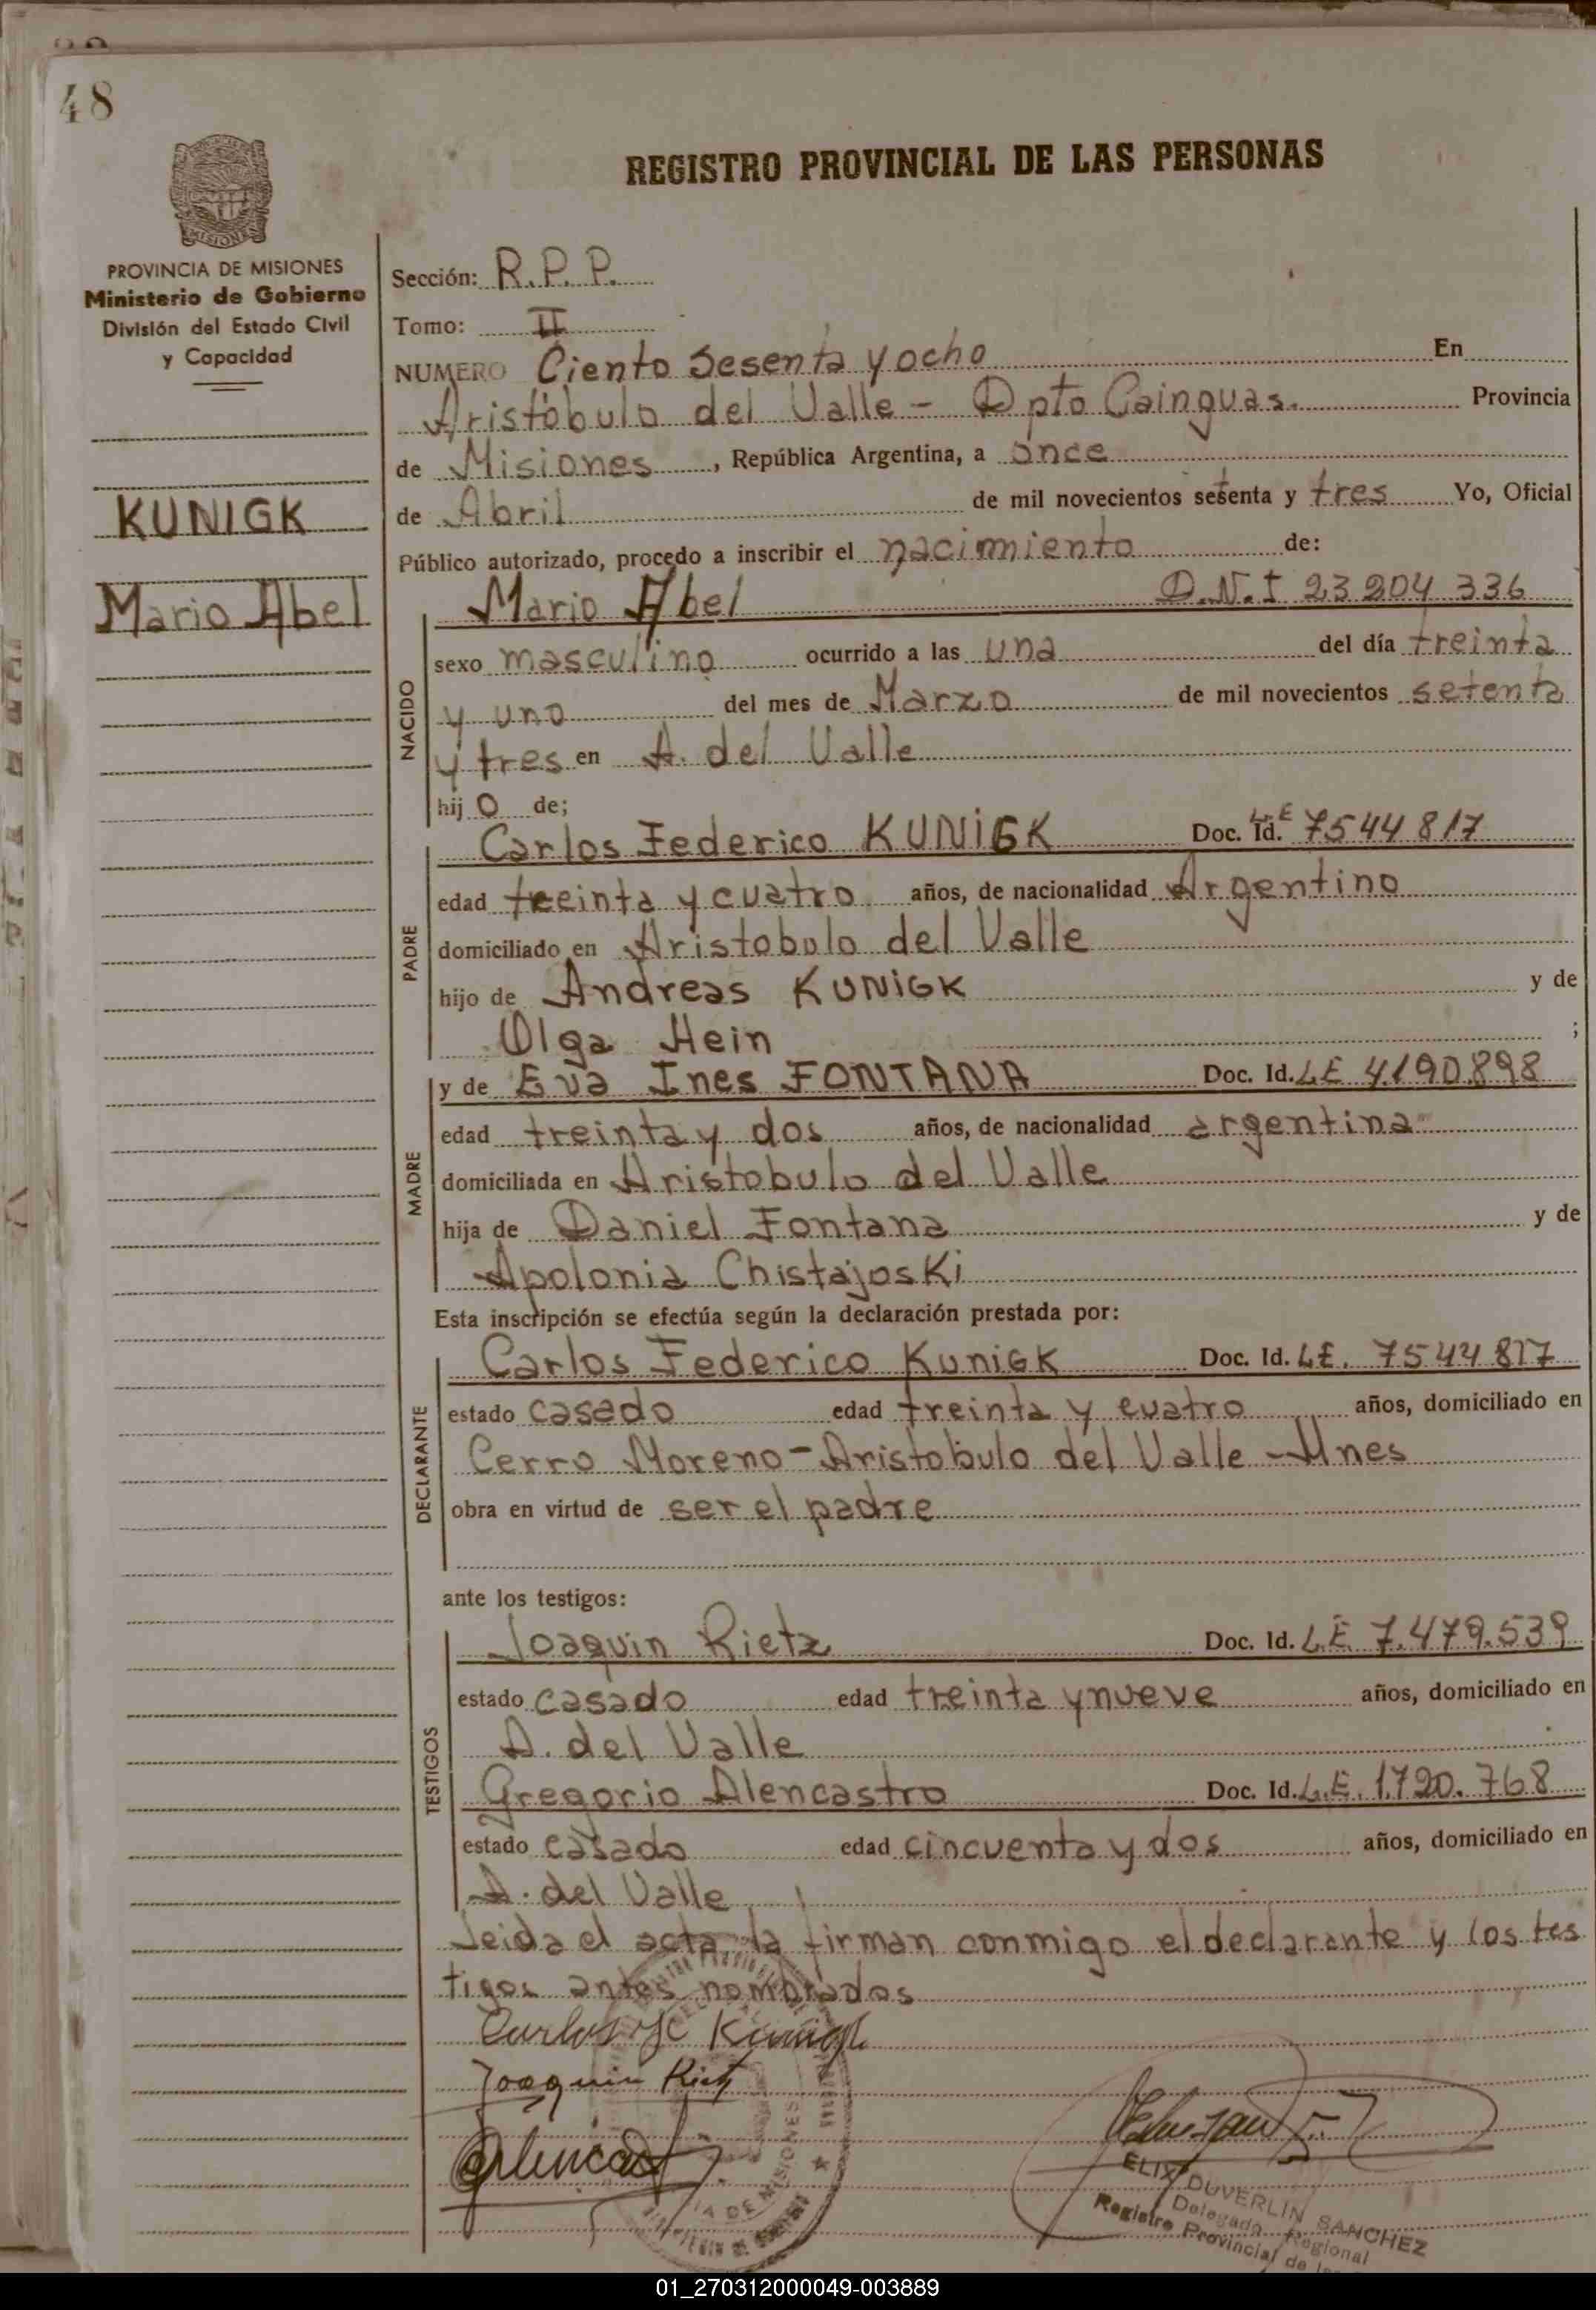 48
REGISTRO PROVINCIAL DE LAS PERSONAS
MISIONES
PROVINCIA DE MISIONES
Ministerio de Gobierno
División del Estado Civil
y Capacidad
KUNIGK
Mario Abel
Sección: R.P.P.
Tomo: II
NUMERO Ciento Sesenta y ocho En
Aristóbulo del Valle - Dpto Cainguas. Provincia
de Misiones, República Argentina, a once
de Abril de mil novecientos setenta y tres Yo, Oficial
Público autorizado, procedo a inscribir el nacimiento de:
Mario Abel D.N.I 23 204 336
NACIDO
sexo masculino ocurrido a las una del día treinta
y uno del mes de Marzo de mil novecientos setenta
y tres en A. del Valle
hijo de;
Carlos Federico KUNIGK Doc. Id. L.E 7544817
PADRE
edad treinta y cuatro años, de nacionalidad Argentino
domiciliado en Aristobulo del Valle
hijo de Andreas KUNIGK y de
Olga Hein ;
y de Eva Ines FONTANA Doc. Id. LE 4.190.898
MADRE
edad treinta y dos años, de nacionalidad argentina
domiciliada en Aristobulo del Valle
hija de Daniel Fontana y de
Apolonia Chistajoski
Esta inscripción se efectúa según la declaración prestada por:
Carlos Federico KuniGK Doc. Id. LE. 7544817
DECLARANTE
estado casado edad treinta y cuatro años, domiciliado en
Cerro Moreno - Aristobulo del Valle - Mnes
obra en virtud de ser el padre
ante los testigos:
Joaquin Rietz Doc. Id. L.E 7.479.539
TESTIGOS
estado casado edad treinta y nueve años, domiciliado en
A. del Valle
Gregorio Alencastro Doc. Id. L.E. 1.720.768
estado casado edad cincuenta y dos años, domiciliado en
A. del Valle
Leida el acta, la firman conmigo el declarante y los tes
tigos antes nombrados
Carlos Kunigk
Joaquin Rietz
ELIX DUVERLIN SANCHEZ
Delegado Regional
Registro Provincial de
01_270312000049-003889